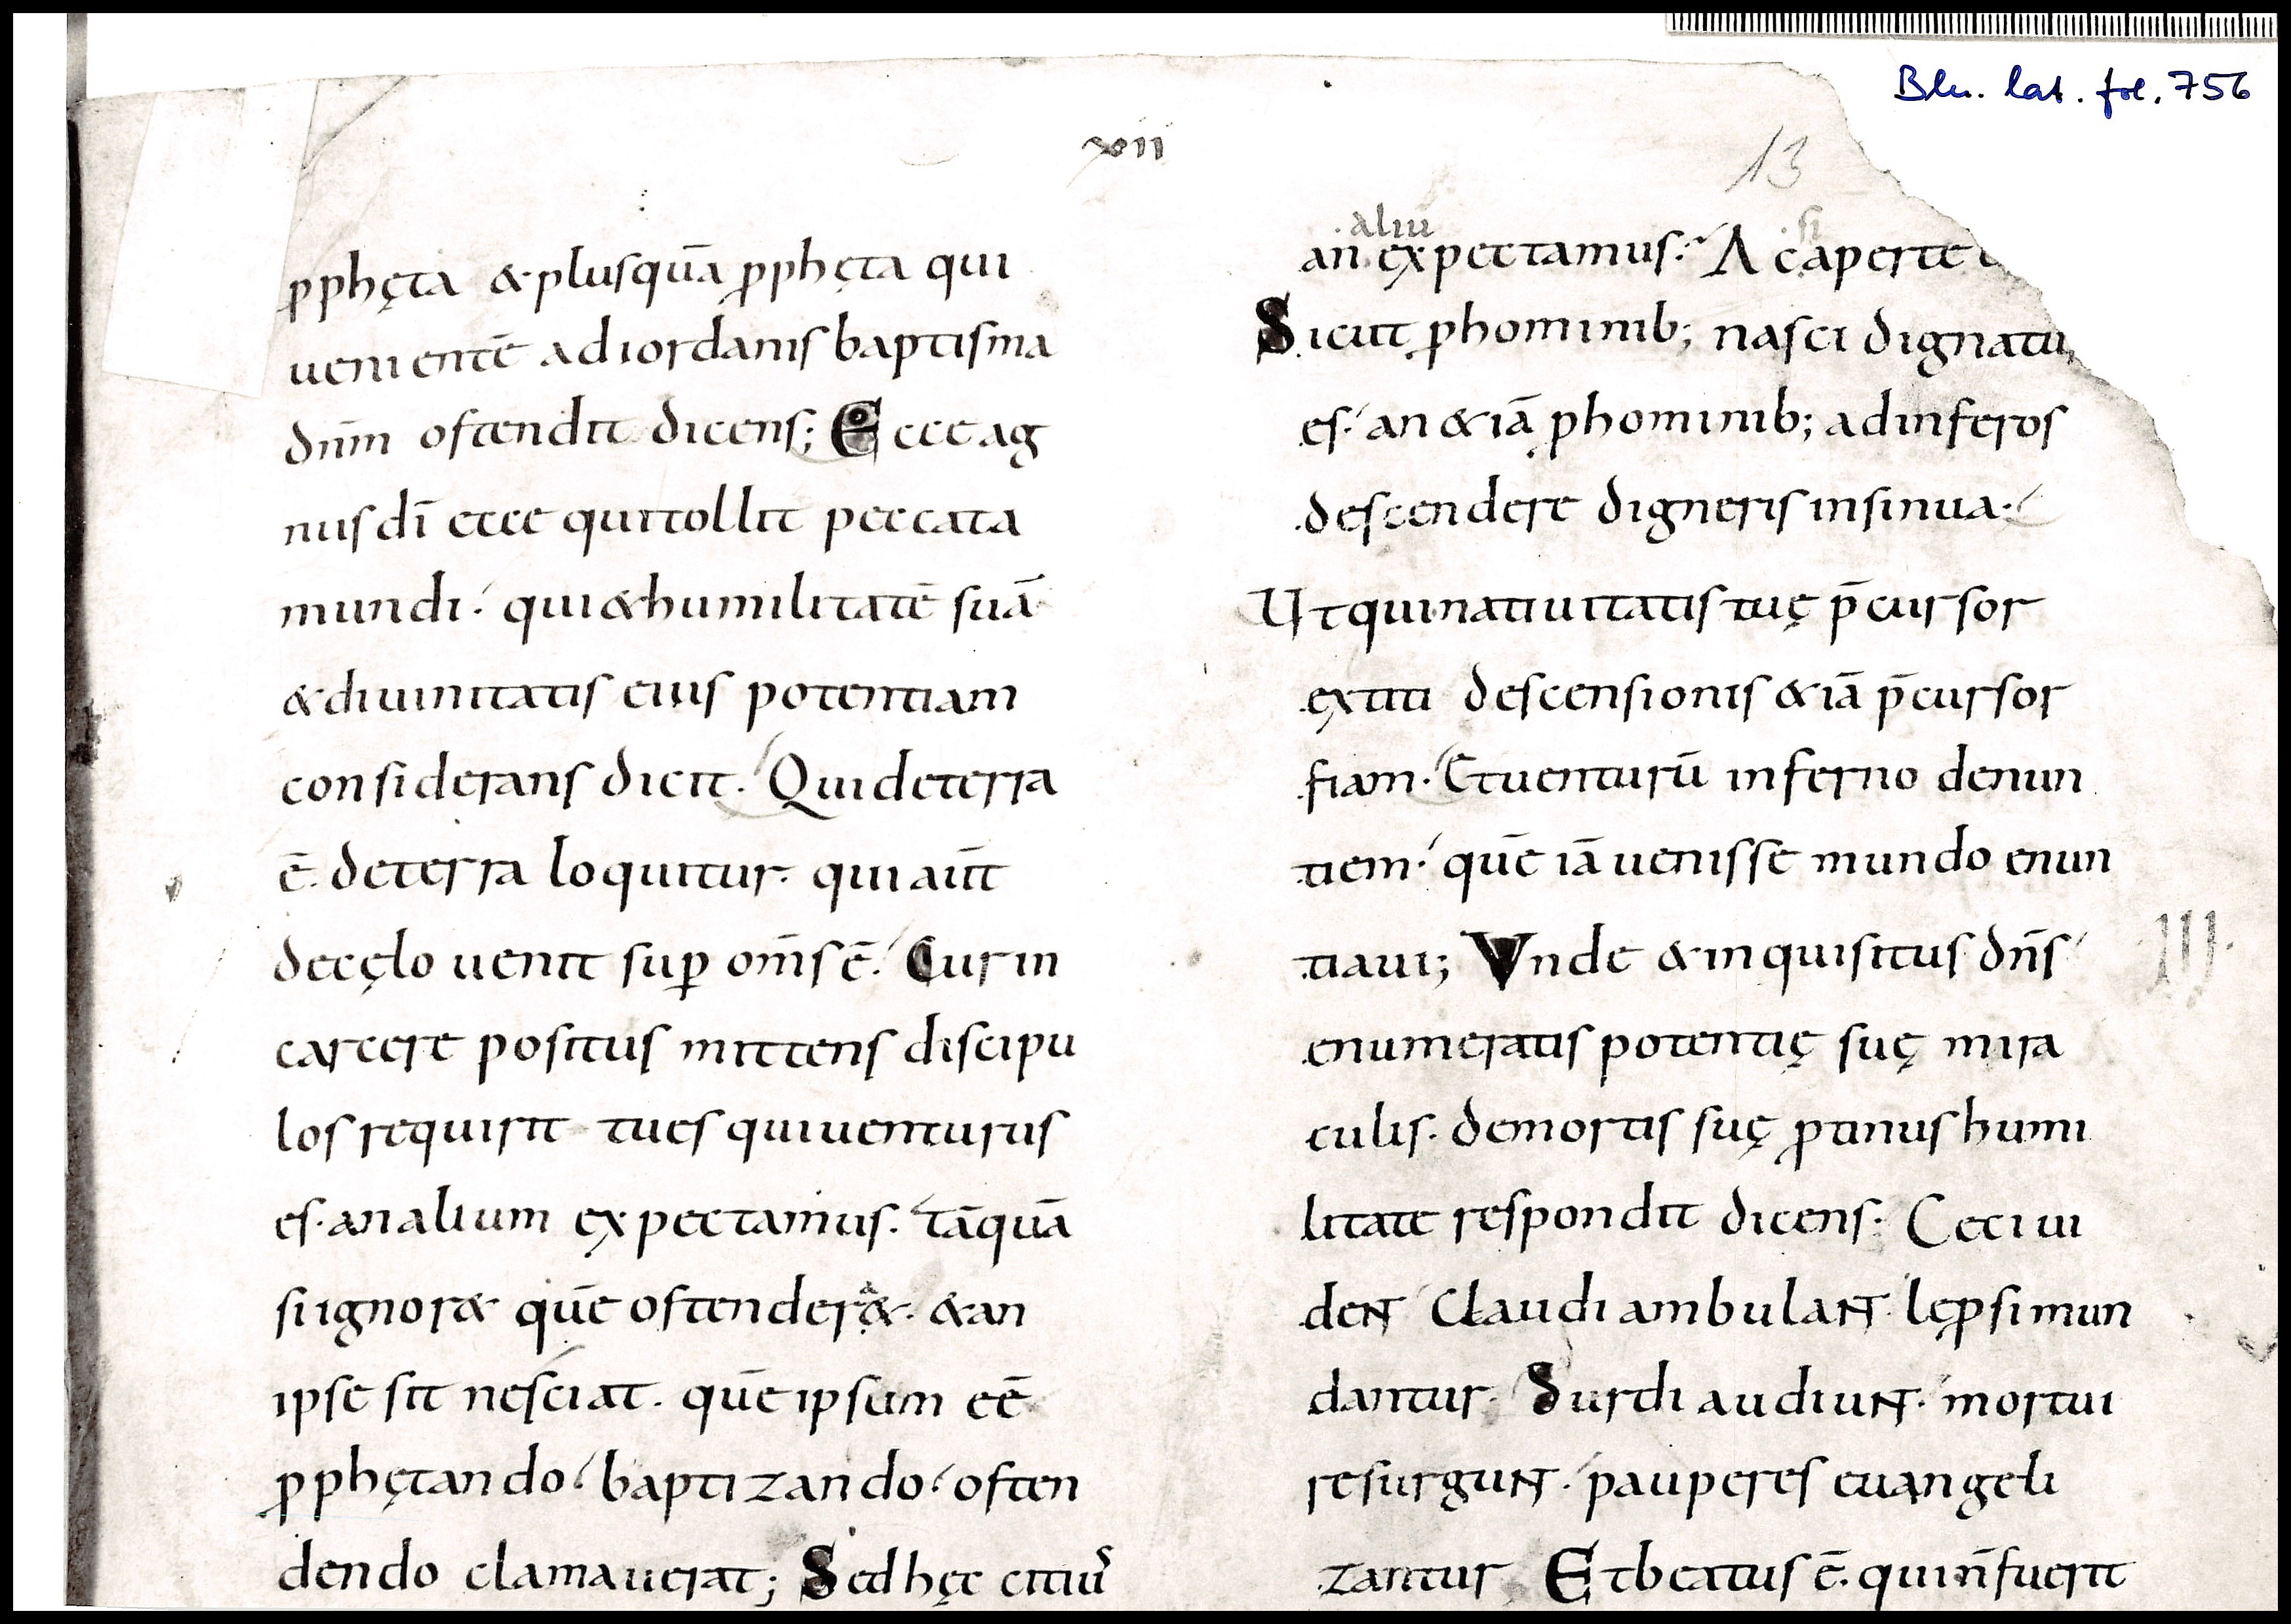 Bln. lat. fol. 756
xii
13
ꝓphęta & plusquā ꝓphęta qui
uenientē ad iordanis baptisma
dnm̄ ostendit dicens; Ecce ag
nus dī ecce qui tollit peccata
mundi. qui & humilitatē suā
& diuinitatis eius potentiam
considerans dicit. Qui de terra
ē. de terra loquitur. qui aūt
de cęlo uenit suꝑ om̄s ē. Cur in
carcere positus mittens discipu
los requirit tu es qui uenturus
es. an alium expectamus. tāquā
si ignor& quē ostender&. & an
ipse sit nesciat. quē ipsum eē
ꝓphętando. baptizando. osten
dendo clamauerat; Sed hęc citiu
aliū si
an expectamus. Ac aperte
Sicut ꝓ hominib; nasci dignatu
es. an &iā ꝓ hominib; ad inferos
descendere digneris insinua.
Ut qui natiuitatis tuę p̄cursor
extiti descensionis &iā p̄cursor
fiam. Et uenturū inferno denun
tiem. quē iā uenisse mundo enun
tiaui; Vnde & inquisitus dn̄s
III.
enumeratis potentię suę mira
culis. de mortis suę ꝓtinus humi
litate respondit dicens. Ceci ui
dent Claudi ambulant. lęꝓsi mun
dantur. Surdi audiunt. mortui
resurgunt. pauperes euangeli
zantur Et beatus ē. qui n̄ fuerit